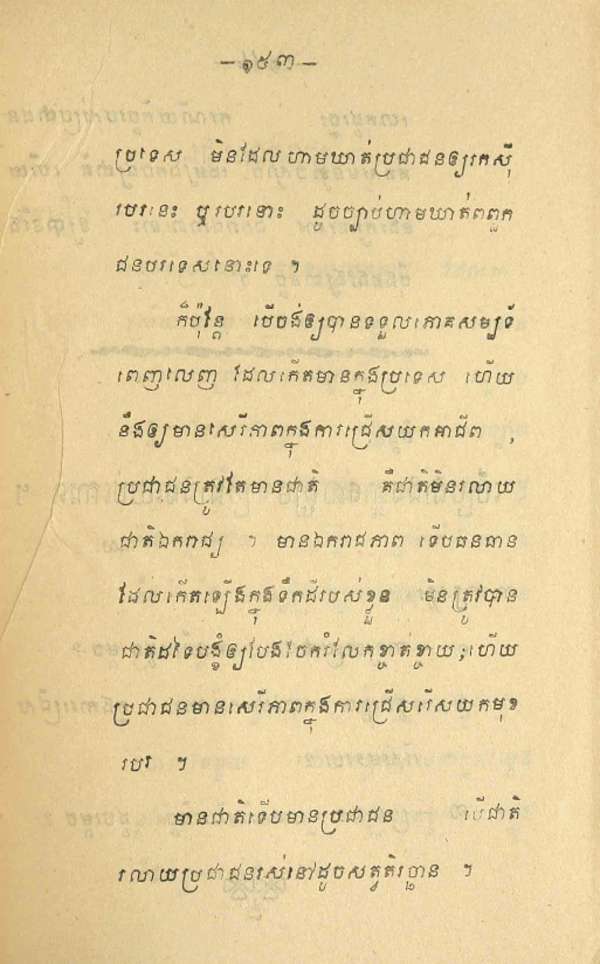 — ១៥៣ —
ប្រទេស មិនដែលហាមឃាត់ប្រជាជនឲ្យរកស៊ី
របរនេះ ឬរបរនោះ ដូចច្បាប់ហាមឃាត់ពពួក
ជនបរទេសនោះទេ ។
ក៏ប៉ុន្តែ បើចង់ឲ្យបានទទួលភោគសម្បទ័
ពេញលេញ ដែលកើតមានក្នុងប្រទេស ហើយ
នឹងឲ្យមានសេរីភាពក្នុងការជ្រើសយកអាជីព ,
ប្រជាជនត្រូវតែមានជាតិ គឺជាតិមិនរលាយ
ជាតិឯករាជ្យ ។ មានឯករាជភាព ទើបធនធាន
ដែលកើតឡើងក្នុងទឹកដីរបស់ខ្លួន មិនត្រូវបាន
ជាតិដទៃបង្ខំឲ្យបែងចែករំលែកខ្ចាត់ខ្ចាយ , ហើយ
ប្រជាជនមានសេរីភាពក្នុងការជ្រើសរើសយកមុខ
របរ ។
មានជាតិទើបមានប្រជាជន បើជាតិ
រលាយប្រជាជនរស់នៅដូចសត្វតិរច្ឆាន ។